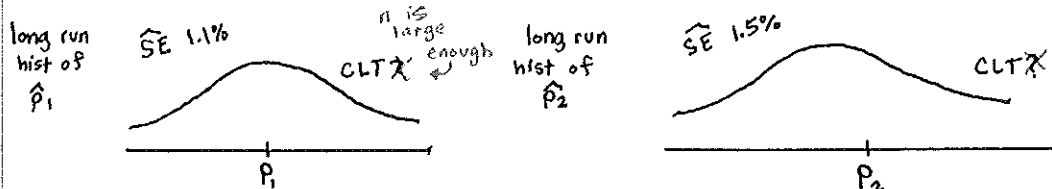 long run
hist of
p̂₁
SE^ 1.1%
n is
large
enough
CLT
P₁
long run
hist of
p̂₂
SE^ 1.5%
CLT
P₂